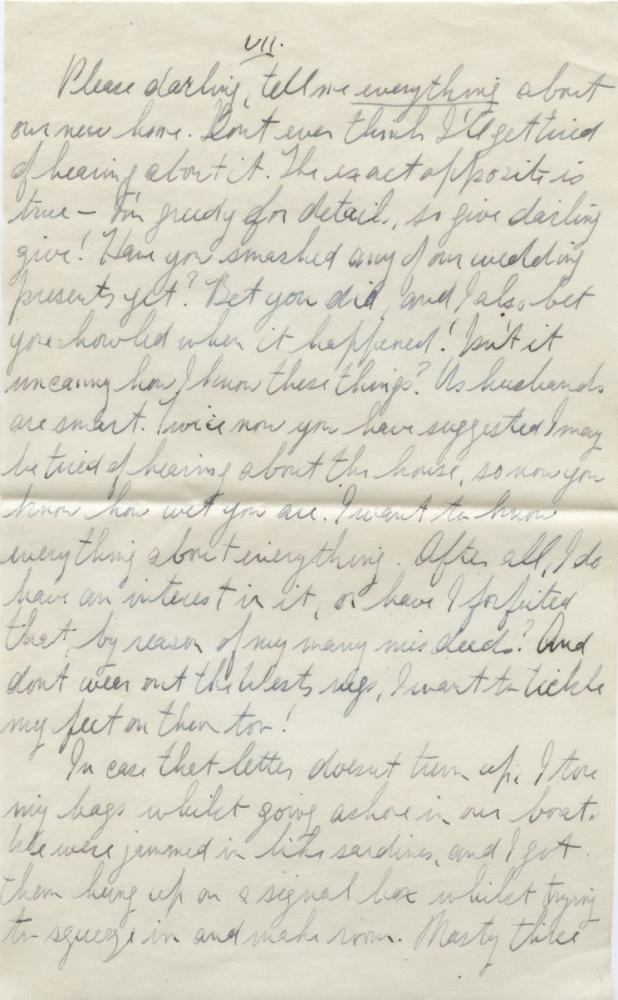 VII.
Please darling, tell me everything about
our new home. Dont ever think I'll get tired
of hearing about it. The exact opposite is
true - I'm greedy for detail, so give darling
give! Have you smashed any of our wedding
presents yet? Bet you did, and I also bet
you howled when it happened! Isn't it
uncanny how I know these things? Us husbands
are smart. Twice now you have suggested I may
be tired of hearing about the house, so now you
know how wet you are. I want to know
everything about everything. After all, I do
have an interest in it, or have I forfeited
that, by reason of my many misdeeds? And
dont wear out the Wests rugs, I want to tickle
my feet on them too!
In case that letter doesnt turn up, I tore
my bags whilst going ashore in our boat.
We were jammed in like sardines, and I got
them hung up on a signal box whilst trying
to squeeze in and make room. Nasty three